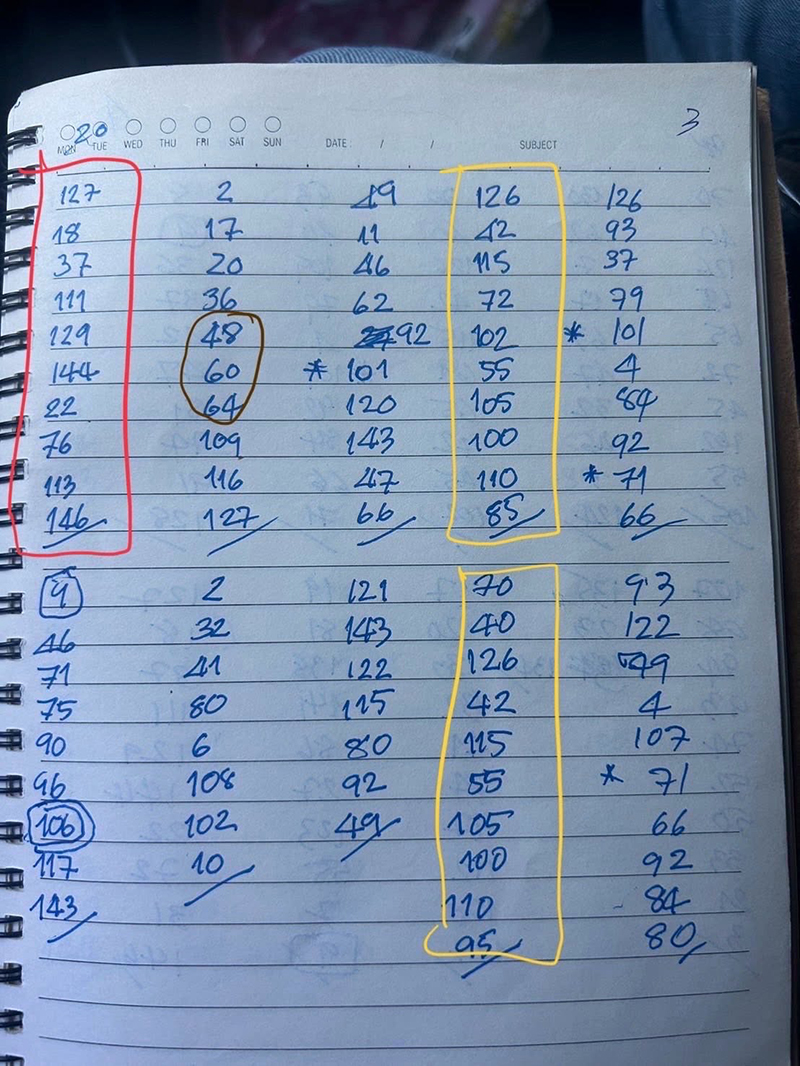 3
20
MON TUE WED THU FRI SAT SUN DATE / / SUBJECT
127 2 49 126 126
18 17 11 42 93
37 20 46 115 37
111 36 62 72 79
129 48 92 102 * 101
144 60 * 101 55 4
22 64 120 105 84
76 109 143 100 92
113 116 47 110 * 71
146 127 66 85 66
9 2 121 70 93
46 32 143 40 122
71 41 122 126 49
75 80 115 42 4
90 6 80 115 107
96 108 92 55 * 71
106 102 49 105 66
117 10 100 92
143 110 84
95 80